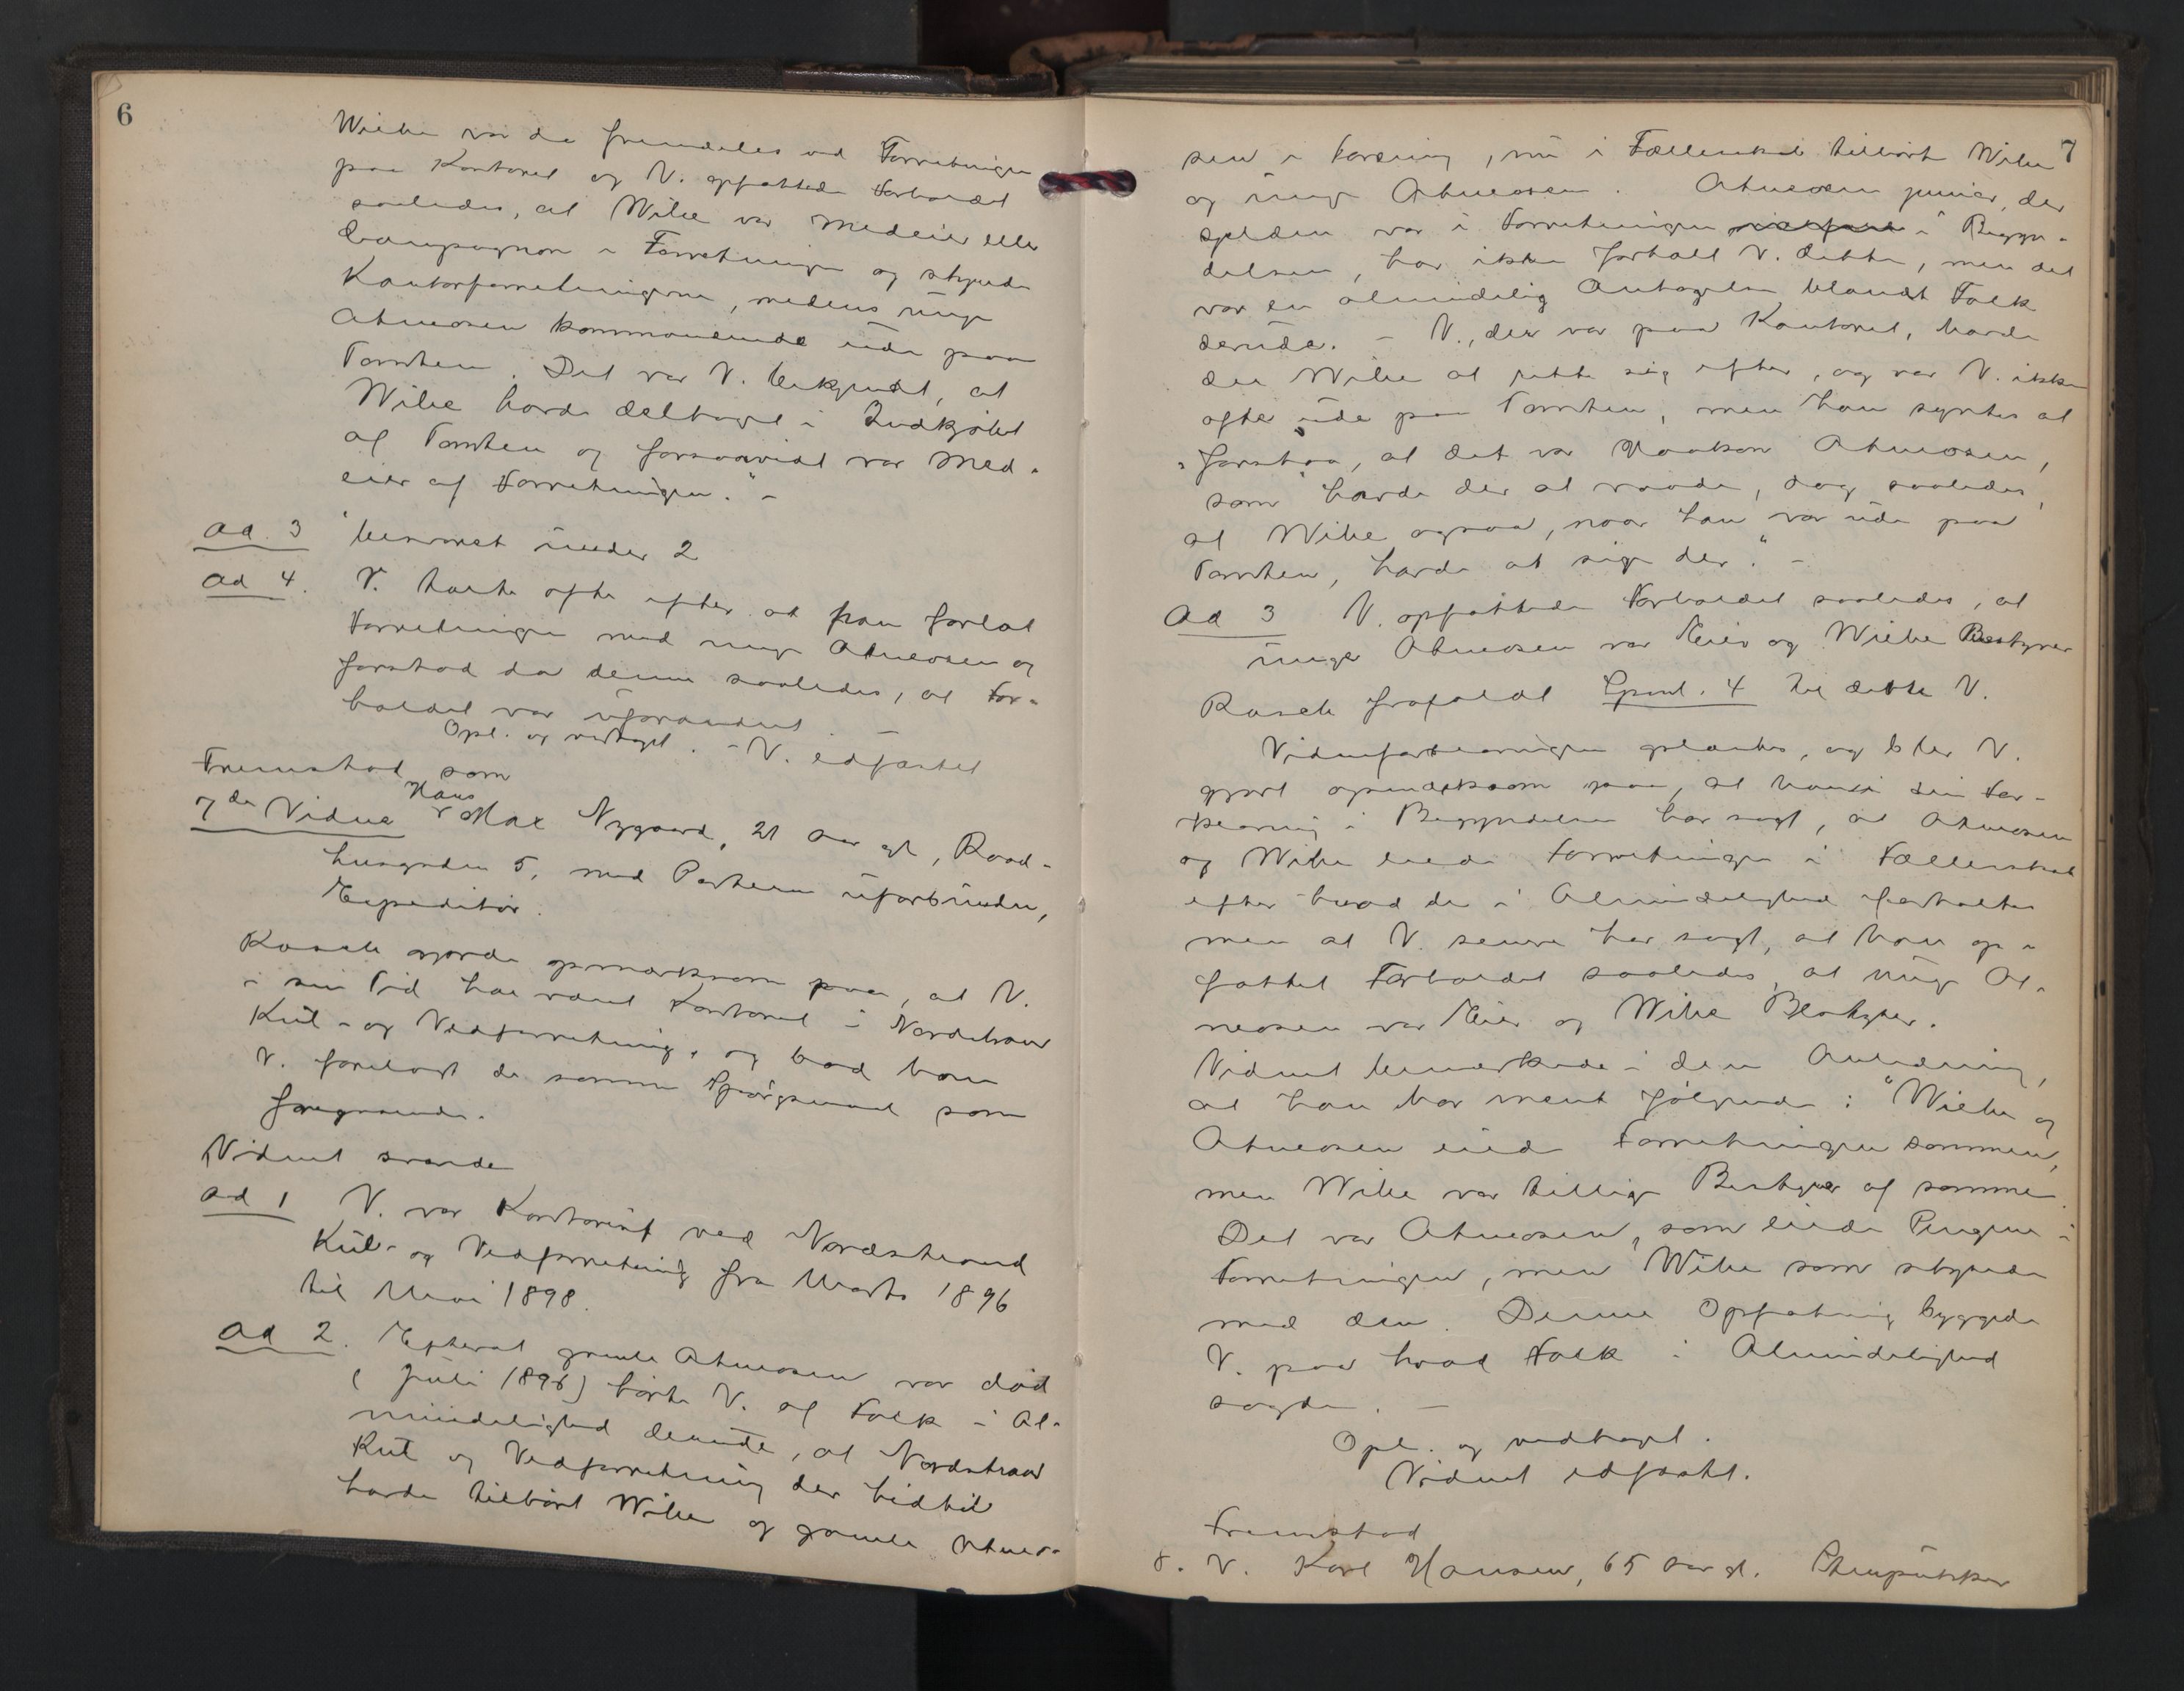 6
Wiebe var da fremdeles ved Forretningen
paa Kontoret og V. opfattede Forholdet
saaledes, at Wibe var Medeier eller
Compagnon i Forretningen og styrede
Kontorforretningerne, medens unge
Atneosen kommanderede ude paa
Tomten. Det var V. bekjendt, at
Wibe havde deltaget i Indkjøbet
af Tomten og forsaavidt var Med-
eier af Forretningen." –
ad. 3 besvaret under 2
ad 4. V. talte ofte efter at han forlod
Forretningen med unge Atneosen og
forstod da denne saaledes, at For-
holdet var uforandret
Opl. og vedtaget. – V. edfæstet
Fremstod som
7de Vidne Hans Max Nygaard, 21 Aar gl, Raad-
husgaden 5, med Parterne uforbunden,
Expeditør.
Rasch gjorde opmærksom paa, at V.
i sin Tid har været Kontorist i Nordstrand
Kul- og Vedforretning, og bad ham
V. forelagt de samme Spørgsmaal som
foregaaende.
Vidnet svarede
ad 1 V. var Kontorist ved Nordstrand
Kul- og Vedforretning fra Marts 1896
til Mai 1898.
ad 2. Efterat gamle Atneosen var død
(Juli 1896) hørte V. af Folk i Al-
mindelighed derude, at Nordstrand
Kul og Vedforretning der hidtil
havde tilhørt Wibe og gamle Atneo-
7
sen i Forening, nu i Fællesskab tilhørte Wibe
og unge Atneosen. Atneosen junior, der
sjelden var i Forretningen i Begyn-
delsen, har ikke fortalt V. dette, men det
var en almindelig Antagelse blandt Folk
derude. – V., der var paa Kontoret, havde
der Wibe at rette sig efter, og var V. ikke
ofte ude paa Tomten, men han syntes at
forstaa, at det var Haakon Atneosen,
som havde der at raade, dog saaledes,
at Wibe ogsaa, naar han var ude paa
Tomten, havde at sige der." –
Ad 3 V. opfattede Forholdet saaledes, at
unge Atneosen var Eier og Wiebe Bestyrer
Rasch frafaldt Spml. 4 til dette V.
Vidneforklaringen oplæstes, og blev V.
gjort opmærksom paa, at han i sin For-
klaring i Begyndelsen har sagt, at Atneosen
og Wibe eiede Forretningen i Fællesskab
efter hvad der i Almindelighed fortaltes
men at V. senere har sagt, at han op-
fattet Forholdet saaledes, at unge At-
neosen var Eier og Wibe Bestyrer.
Vidnet bemærkede i den Anledning,
at han har ment følgende: "Wiebe og
Atneosen eiede Forretningen sammen,
men Wibe var tillige Bestyrer af samme.
Det var Atneosen, som eiede Pengene i
Forretningen, men Wibe som styrede
med den. Denne Opfatning byggede
V. paa hvad Folk i Almindelighed
sagde. –
Opl. og vedtaget.
Vidnet edfæstet.
Fremstod
8. V. Karl Hansen, 65 Aar gl. Stenpukker